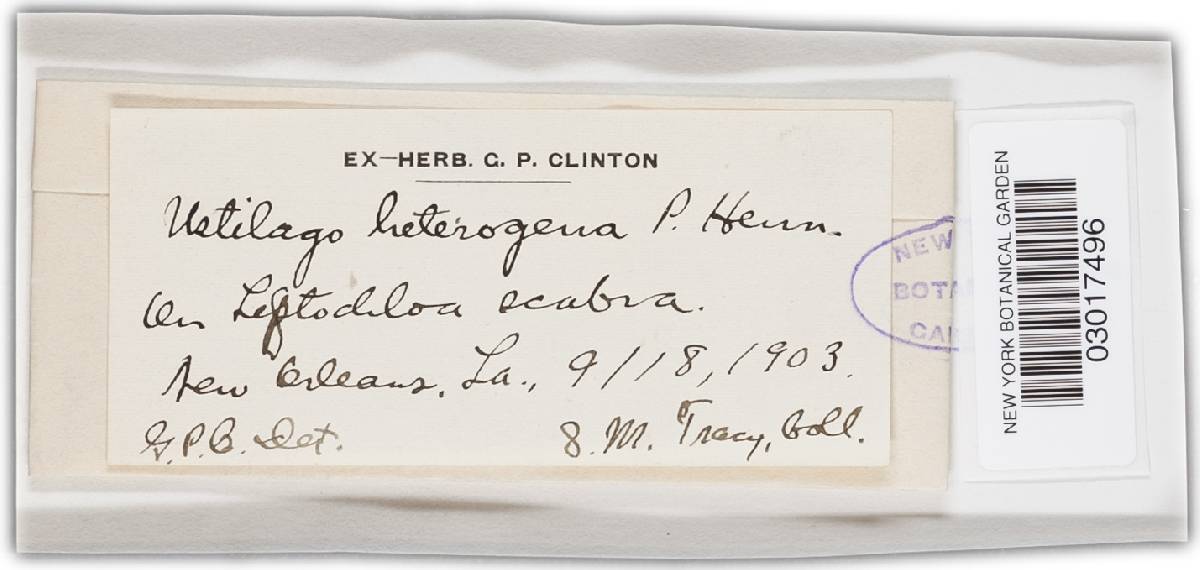 EX—HERB. G. P. CLINTON
Ustilago heterogena P. Henn.
On Leptochloa scabra.
New Orleans, La., 9/18, 1903.
G.P.C. Det.
S. M. Tracy, Coll.
NEW
BOTA
GAR
NEW YORK BOTANICAL GARDEN
03017496